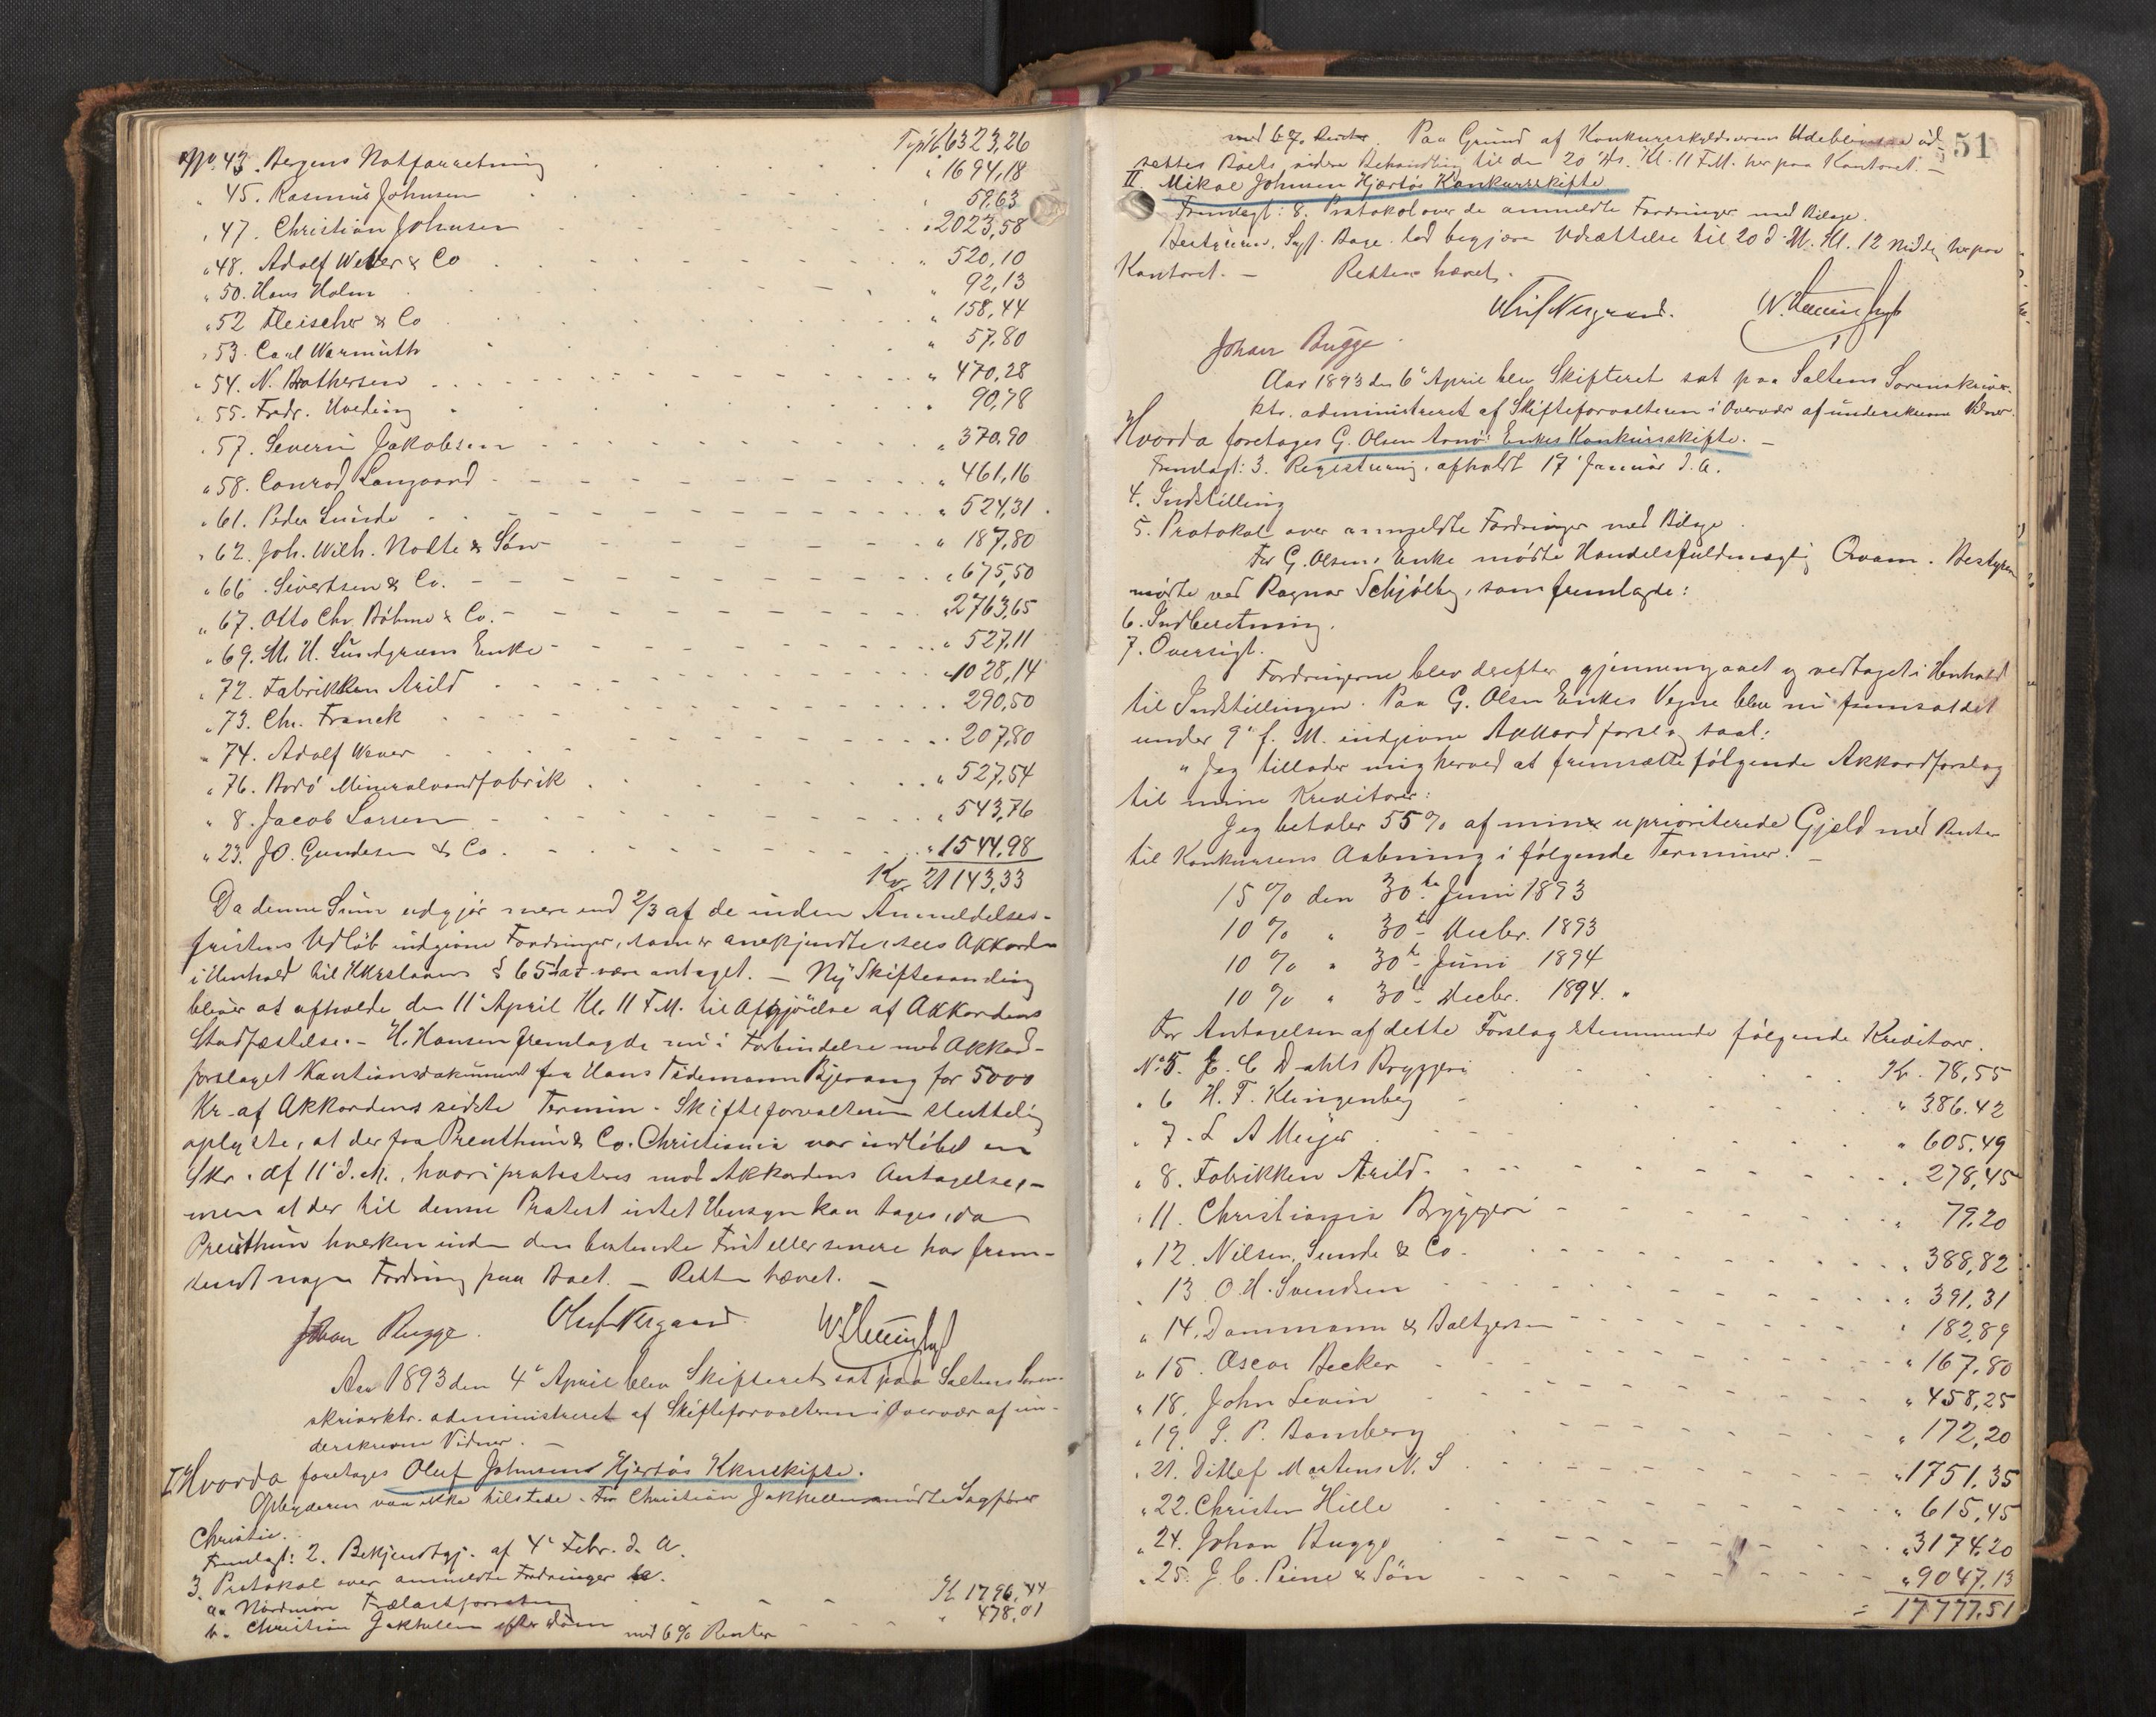 Tspt. 6323,26
No. 43. Bergens Notforretning " 1694,18
" 45. Rasmus Johnsen " 59,63
" 47. Christian Johnsen " 2023,58
" 48. Adolf Weber & Co " 520,10
" 50. Hans Holm " 92,13
" 52 Fleischer & Co " 158,44
" 53. Carl Warmuth " 57,80
" 54. N. Brothersen " 470,28
" 55. Fredr. Hveding " 90,78
" 57. Severin Jakobsen " 370,90
" 58. Conrad Langaard " 461,16
" 61. Peder Sunde " 524,31
" 62. Joh. Wilh. Nolte & Søn " 187,80
" 66. Sivertsen & Co. " 675,50
" 67. Otto Chr. Böhme & Co. " 2763,65
" 69. M. H. Lundgreens Enke " 527,11
" 72. Fabrikken Arild " 1028,14
" 73. Chr. Franck " 290,50
" 74. Adolf Wever " 207,80
" 76. Bodø Mineralvandfabrik " 527,54
" 8. Jacob Larsen " 543,76
" 23. JO. Gundersen & Co. " 1544,98
Kr. 21143,33
Da denne Sum udgjør mere end 2/3 af de inden Anmeldelses-
fristens Udløb indgivne Fordringer, som er anerkjendte, sees Akkorden
i Henhold til Kkrslovens § 65 at være antaget. — Ny Skiftesamling
bliver at afholde den 11' April Kl. 11 F.M. til Afgjørelse af Akkordens
Stadfæstelse. – H. Hansen fremlagde nu i Forbindelse med Akkord-
forslaget Kautionsdokument fra Hans Tidemann Bjerang for 5000
Kr. af Akkordens sidste Termin. Skifteforvalteren sluttelig
oplyste, at der fra Preuthun & Co. Christiania var indløbet en
Skr. af 11' d. M., hvori protesteres mod Akkordens Antagelse, –
men at der til denne Protest intet Hensyn kan tages, da
Preuthun hverken inden den bestemte Frist eller senere har frem-
sendt nogen Fordring paa Boet. — Retten hævet. —
Johan Bugge. Oluf Nergaard.
Aar 1893 den 4' April blev Skifteret sat paa Saltens Soren-
skriverktr. administreret af Skifteforvalteren i Overvær af un-
derskrevne Vidner. —
I Hvorda foretages Oluf Johnsens Hjertøs Kkrsskifte.
Opbyderen var ikke tilstede. For Christian Jakhelln mødte Sagfører
Christie.
Fremlagt: 2. Bekjendtgj. af 4' Febr. d. A.
3. Protokol over anmeldte Fordringer
a. Nordmøre Trælastforretning Kr. 1796,44
b. Christian Jakhelln efter Dom med 6% Renter " 478,01
51
med 6% Renter. Paa Grund af Konkursskyldnerens Udeblivelse ud-
sattes Boets videre Behandling til den 20 ds. Kl. 11 F.M. her paa Kontoret. —
II Mikal Johnsen Hjertøs Konkursskifte
Fremlagt: 8. Protokol over de anmeldte Fordringer med Bilage.
Bestyreren, Sagf. Bage lod begjære Udsættelse til 20 d. M. Kl. 12 Middg. her paa
Kontoret. — Retten hævet.
Oluf Nergaard.
Johan Bugge.
Aar 1893 den 6' April blev Skifteret sat paa Saltens Sorenskriver-
ktr. administreret af Skifteforvalteren i Overvær af underskrevne Vidner.
Hvorda foretages G. Olsen Arnø's Enkes Konkursskifte. —
Fremlagt: 3. Registrering, afholdt 17' Januar d. A.
4. Indstilling
5. Protokol over anmeldte Fordringer med Bilage.
For G. Olsens Enke mødte Handelsfuldmægtig Qvam. Bestyren
mødte ved Ragnar Schjølberg, som fremlagde:
6. Indberetning.
7. Oversigt.
Fordringerne blev derefter gjennemgaaet og vedtaget i Henhold
til Indstillingen. Paa G. Olsen Enkes Vegne blev nu fremsat det
under 9' f. M. indgivne Akkordforslag saal:
" Jeg tillader mig herved at fremsætte følgende Akkordforslag
til mine Kreditorer:
Jeg betaler 55% af min uprioriterede Gjæld med Renter
til Konkursens Aabning i følgende Terminer: —
15 % den 30te Juni 1893
10 % " 30te Decbr. 1893
10 % " 30te Juni 1894
10 % " 30te Decbr. 1894. "
For Antagelsen af dette Forslag stemmende følgende Kreditorer.
No 5. E. C. Dahls Bryggeri Kr. 78,55
" 6 H. F. Klingenberg " 386.42
" 7. L A Meijer " 605,49
" 8. Fabrikken Arild. " 278,45
" 11. Christiania Bryggeri " 79,20
" 12. Nilsen, Sunde & Co. " 388,82
" 13 O. H. Svendsen " 391,31
" 14. Dammann & Baltzersen " 182,89
" 15. Oscar Becker " 167,80
" 18. John Levin " 458,25
" 19. S. P. Bamberg " 172,20
" 21. Ditlef Martens N. S. " 1751,35
" 22. Christen Hille " 615,45
" 24. Johan Bugge " 3174,20
" 25. J. C. Piene & Søn " 9047,13
= 17777,51